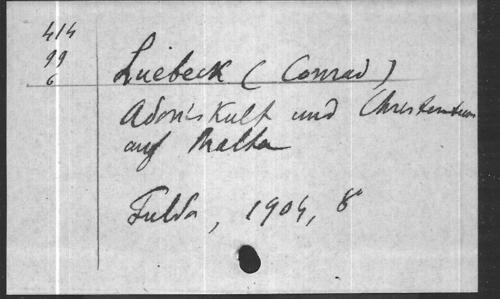 414
99
6
Luebeck (Conrad)
Adoniskult und Christentum
auf Malta
Fulda, 1904, 8°